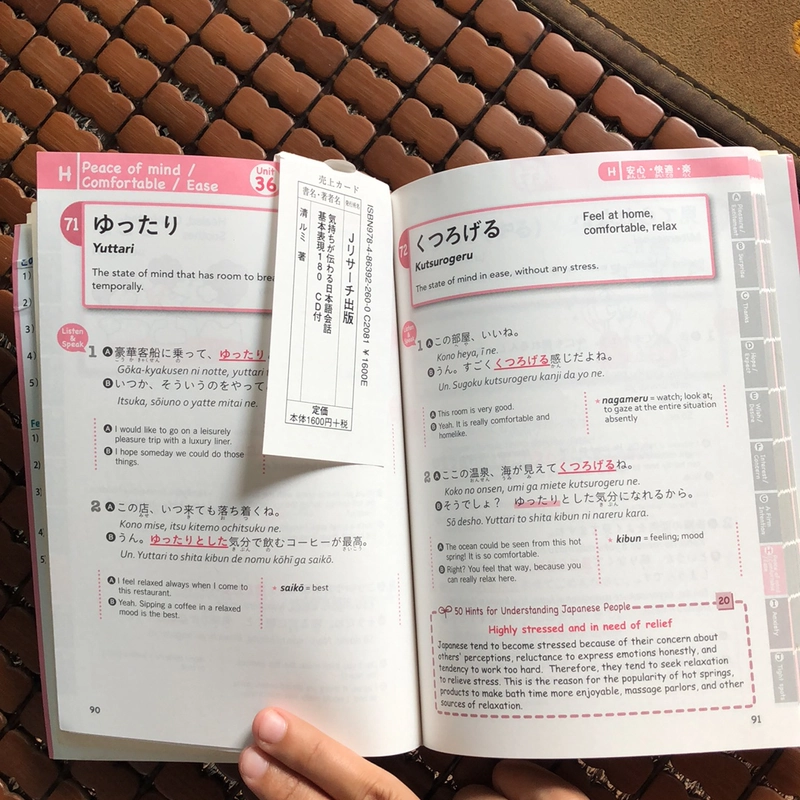 H Peace of mind /
Comfortable / Ease
Unit
36
71 ゆったり
Yuttari
The state of mind that has room to
temporally.
Listen
& Speak
1 A豪華客船に乗って、ゆったり
Gōka-kyakusen ni notte, yuttari
Bいつか、そういうのをやって
Itsuka, sōiuno o yatte mitai ne.
A I would like to go on a leisurely
pleasure trip with a luxury liner.
B I hope someday we could do those
things.
2 Aこの店、いつ来ても落ち着くね。
Kono mise, itsu kitemo ochitsuku ne.
Bうん。ゆったりとした気分で飲むコーヒーが最高。
Un. Yuttari to shita kibun de nomu kōhī ga saikō.
A I feel relaxed always when I come to
this restaurant.
B Yeah. Sipping a coffee in a relaxed
mood is the best.
* saikō = best
90
売上カード
書名・著者名
発行所名
Jリサーチ出版
気持ちが伝わる日本語会話
基本表現180 CD付
清 ルミ 著
ISBN978-4-86392-260-0 C2081 ¥1600E
定価
本体1600円+税
H 安心・快適・楽
72 くつろげる
Kutsurogeru
Feel at home,
comfortable, relax
The state of mind in ease, without any stress.
1 Aこの部屋、いいね。
Kono heya, ī ne.
Bうん。すごくくつろげる感じだよね。
Un. Sugoku kutsurogeru kanji da yo ne.
A This room is very good.
B Yeah. It is really comfortable and
homelike.
* nagameru = watch; look at;
to gaze at the entire situation
absently
2 Aここの温泉、海が見えてくつろげるね。
Koko no onsen, umi ga miete kutsurogeru ne.
Bそうでしょ？ ゆったりとした気分になれるから。
Sō desho. Yuttari to shita kibun ni nareru kara.
A The ocean could be seen from this hot
spring! It is so comfortable.
B Right? You feel that way, because you
can really relax here.
* kibun = feeling; mood
50 Hints for Understanding Japanese People
20
Highly stressed and in need of relief
Japanese tend to become stressed because of their concern about
others' perceptions, reluctance to express emotions honestly, and
tendency to work too hard. Therefore, they tend to seek relaxation
to relieve stress. This is the reason for the popularity of hot springs,
products to make bath time more enjoyable, massage parlors, and other
sources of relaxation.
91